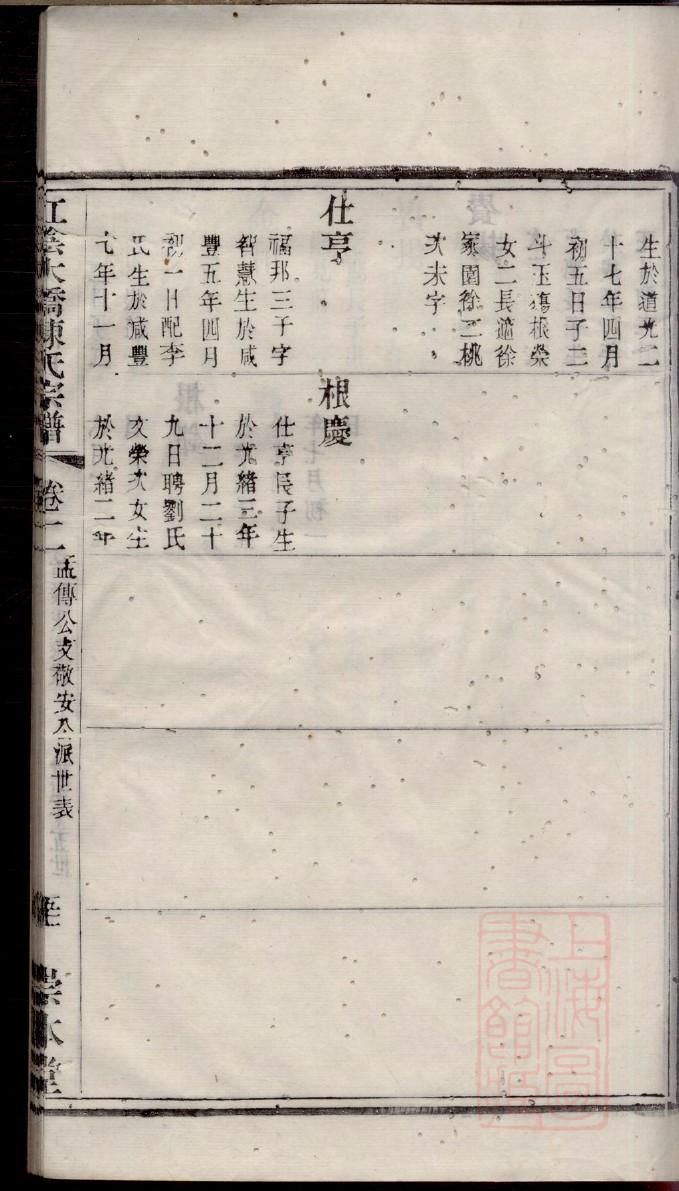 生於道光二
十七年四月
初五日子三
斗玉瑞根榮
女二長適徐
家園徐二桃
次未字
仕亨
福邦三子字
智慧生於咸
豐五年四月
初一日配李
氏生於咸豐
七年十一月
根慶
仕亨長子生
於光緒三年
十二月二十
九日聘劉氏
文榮次女生
於光緒二年
江陰大橋陳氏宗譜
卷二
孟傳公支敬安公派世表
崇本堂
上海圖書館藏